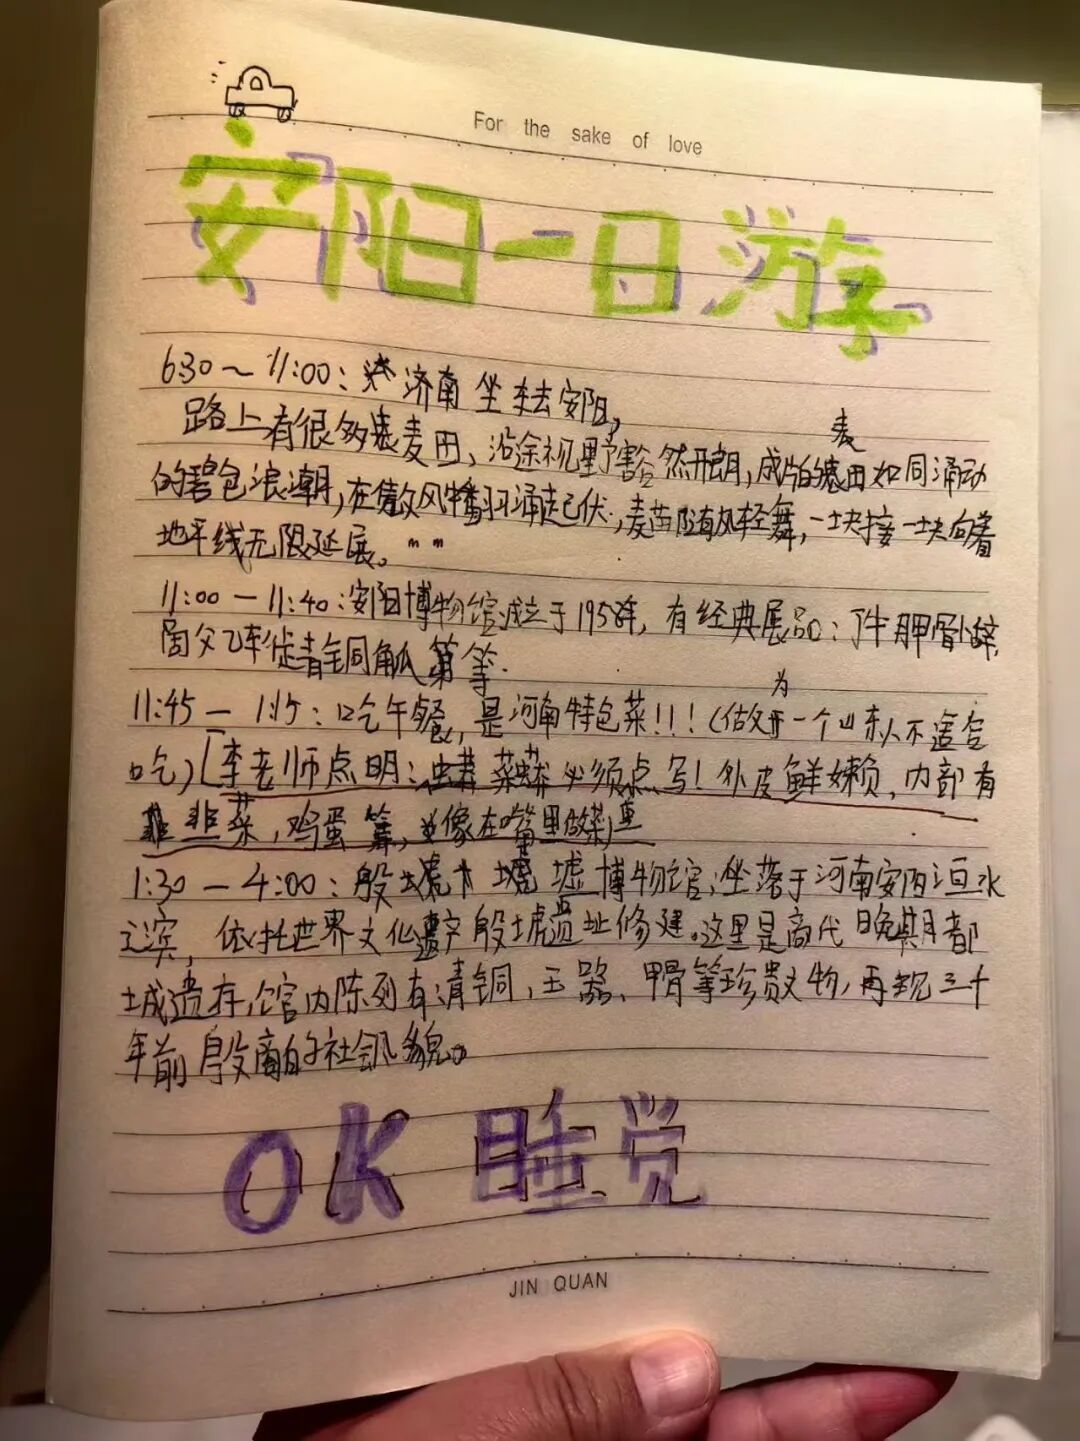 For the sake of love
安阳一日游
6:30～11:00: 济南坐车去安阳,
路上有很多麦田、沿途视野豁然开朗,成片的麦田如同涌动
的碧色浪潮,在微风中翻涌起伏,麦苗随风轻舞,一块接一块向着
地平线无限延展。
11:00—11:40:安阳博物馆成立于1958年,有经典展品:
父乙 青铜觚等.
11:45— :吃午餐,是河南特色菜!!!(做为一个山东人不适合
吃)[李老师点明: 菜蟒必须点写!外皮鲜嫩,内部有
韭菜,鸡蛋等,像在嘴里做
1:30—4:00:殷墟博物馆:坐落于河南安阳洹水
之滨,依托世界文化遗产殷墟遗址修建。这里是商代晚期都
城遗存,馆内陈列有青铜,玉器、甲骨等珍贵文物,再现三千
年前殷商的社会风貌。
OK 睡觉
JIN QUAN